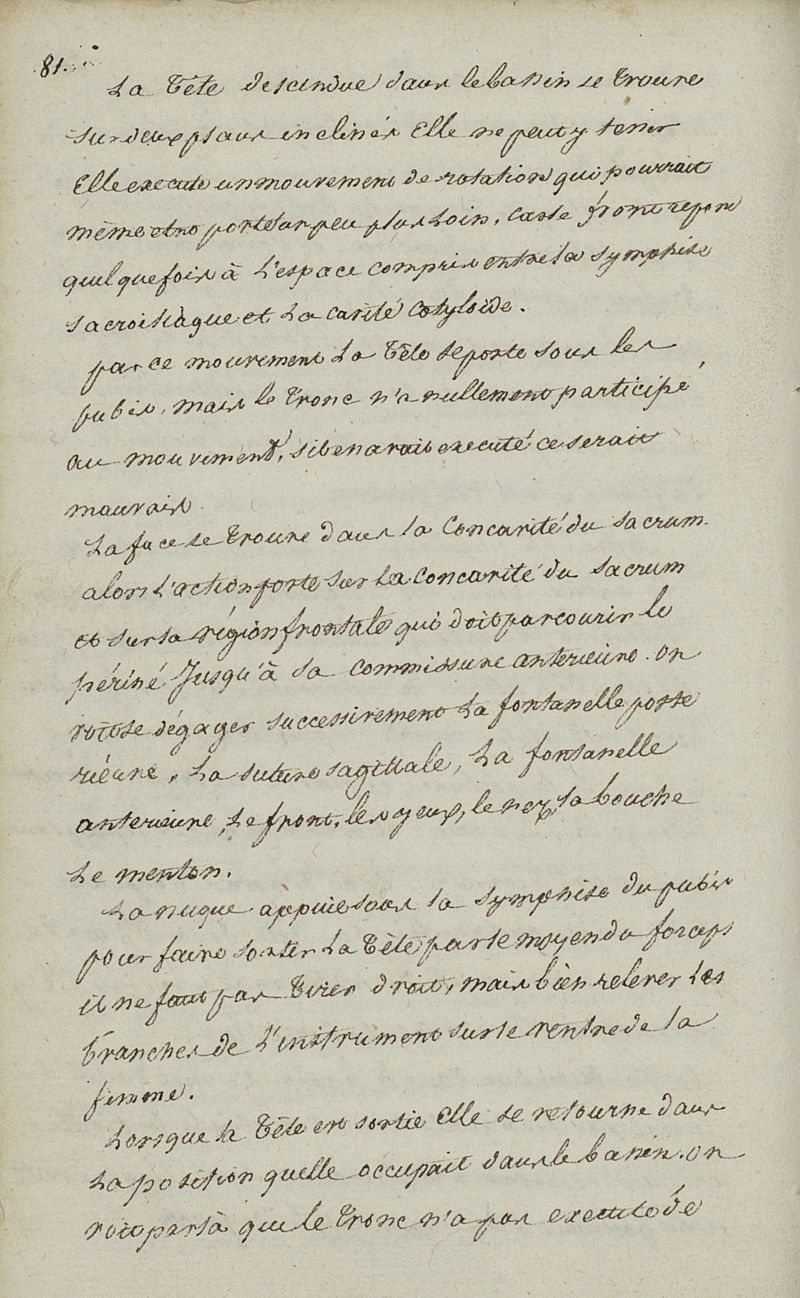 81.
La Tête descendue dans le bassin se trouve
sur deux plans inclinés Elle ne peut y tenir
Elle execute un mouvement de rotation qui pourrait
même etre porté un peu plus loin, car le front repond
quelquefois à L'espace compris entre la symphise
sacroiliaque et La cavité cotyloide.
par ce mouvement La Tête se porte sous les
pubis, mais le Tronc n'a nullement participé
au mouvement, s'il en avait executé ce serait
mauvais
La face se trouve dans la Concavité du sacrum.
alors L'action porte sur La concavité du sacrum
et sur la région frontale qui doit parcourir le
périné Jusqu'à sa commissure anterieure. on
voit se dégager successivement La fontanelle poste
rieure, La suture sagittale, La fontanelle
anterieure, Le front, les yeux, le nez, la bouche
Le menton.
La nuque appuie sous la symphise du pubis
pour faire sortir La Tête par le moyen du forceps
il ne faut pas Tirer droit, mais bien relever Les
branches de L'instrument sur le ventre de la
femme.
Lorsque la Tête est sortie Elle se retourne dans
La position quelle occupait dans le bassin. on
voit par là que le Tronc n'a pas executé de